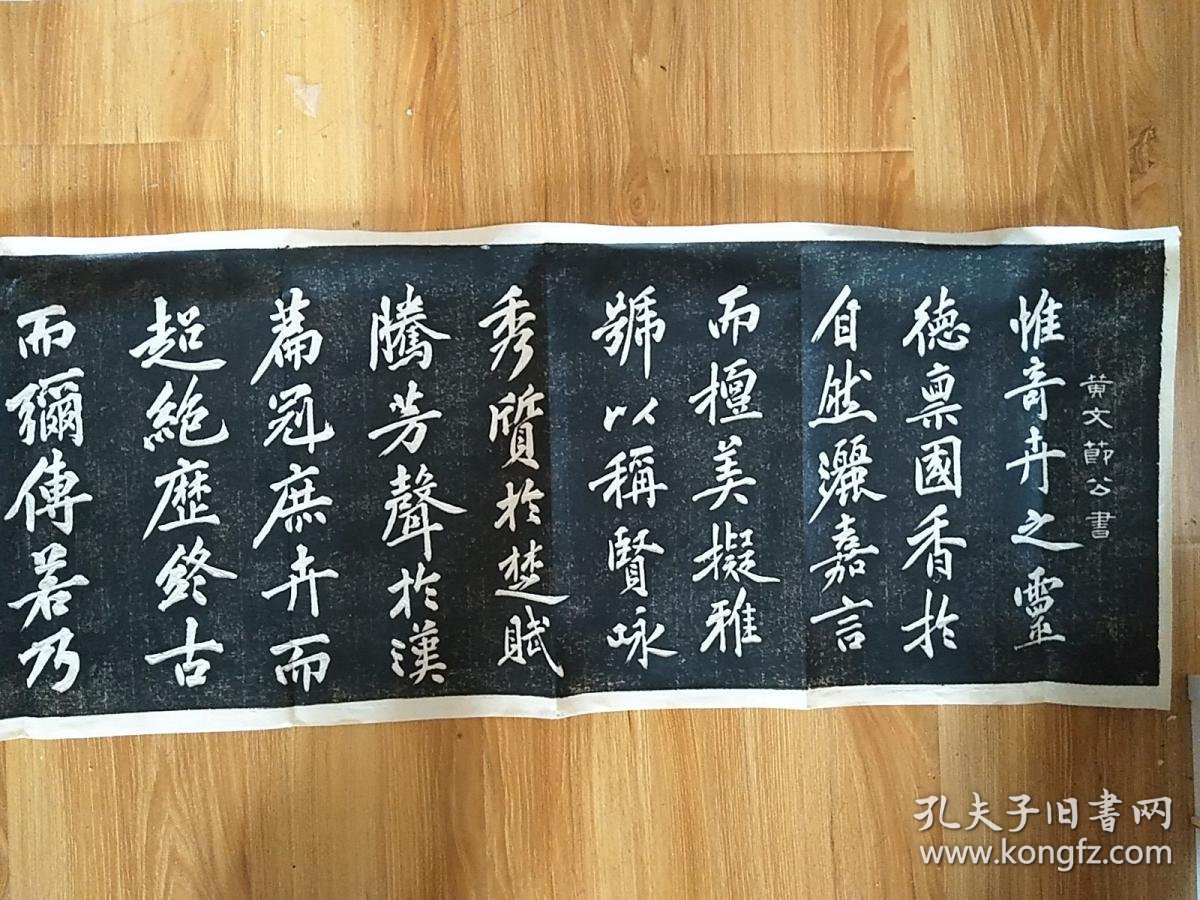 黄文節公書
惟奇卉之靈
德禀國香於
自然灑嘉言
而擅美擬雅
號以稱賢咏
秀質於楚賦
騰芳聲於漢
篇冠庶卉而
超絶歷終古
而彌傳若乃
孔夫子旧书网
www.kongfz.com